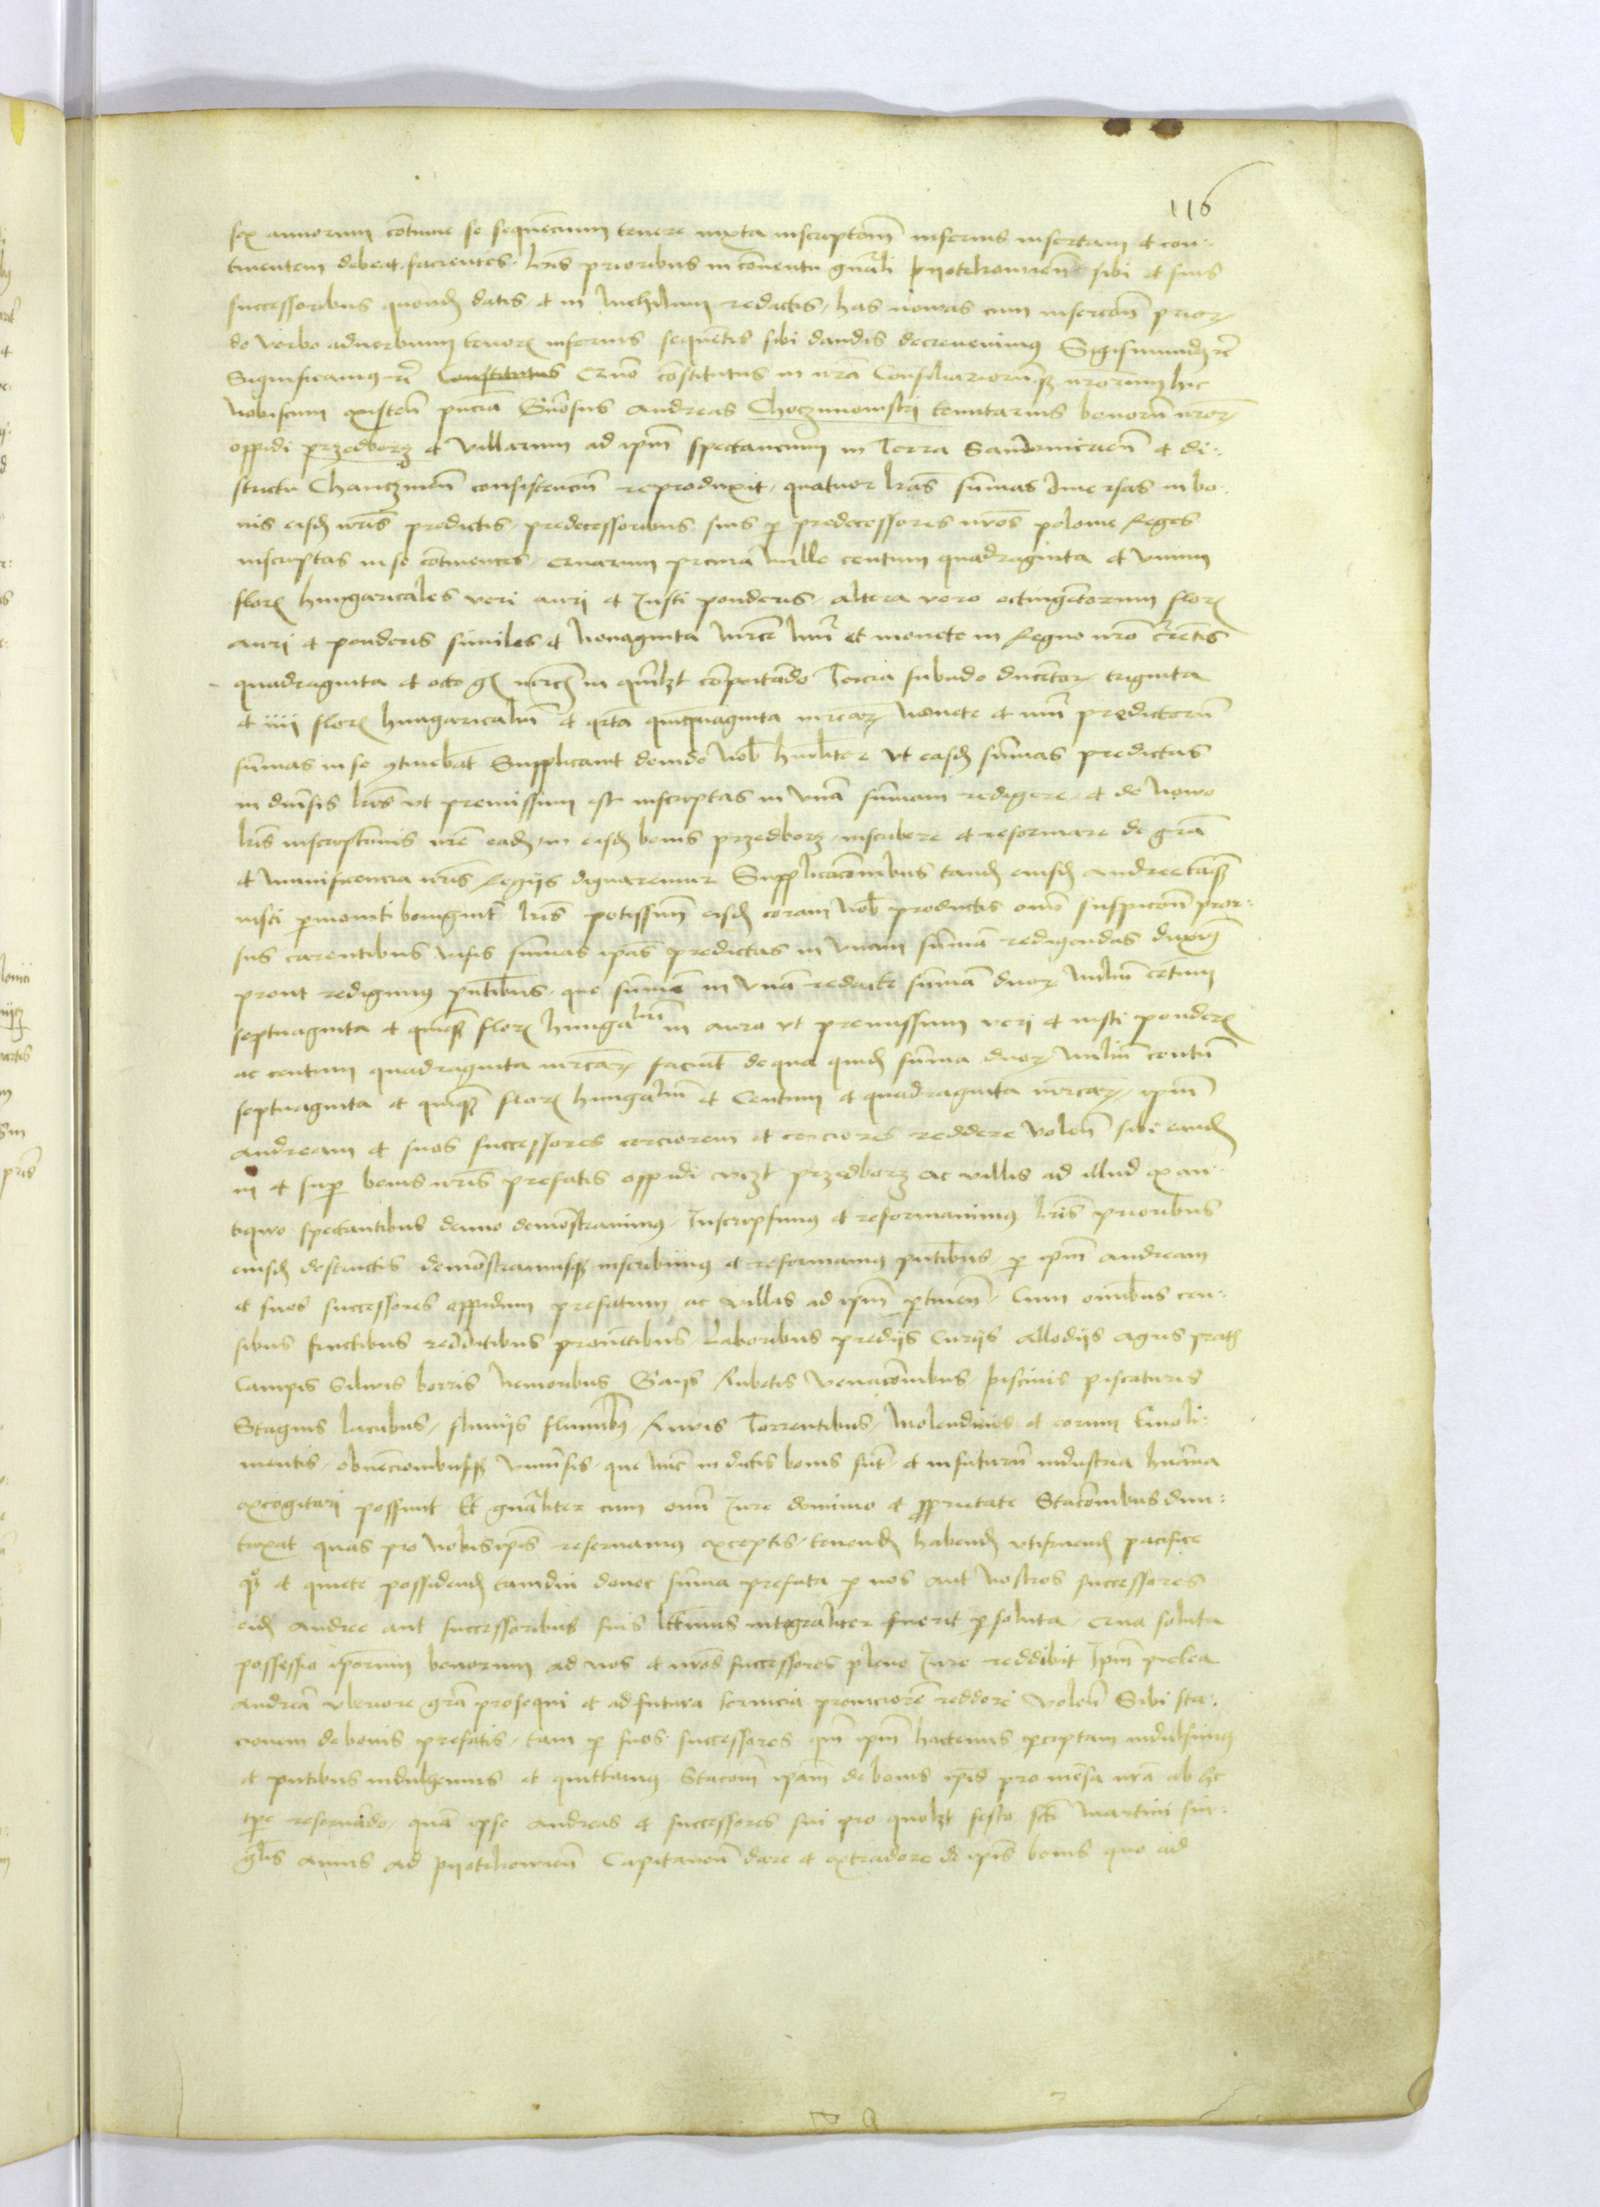 116
sex annorum continue se sequencium tenere iuxta inscriptom inferius insertam et con-
tinentem debeat facientes. lris prioribus in conventu gnali pyotrkovien sibi et suis
successoribus quondam datis et in nichilum redactis, has novas cum insercom prior
de verbo adverbum tenor inferius sequentis sibi dandis decrevimus Sigismundus etc
Significamus etc Constitutus Quo constitutus in nra Consiliariorumq nrorum hic
nobiscum existen pncia Gnosus Andreas Choczimowsky tenutarius bonorum nror
oppidi przedborz et villarum ad ipm spectancium in Terra Sandomirien et di-
strictu Chanczinen consistencium reproduxit, quatuor lras summas diversas in bo-
nis eisdem nris predictis, predecessoribus suis per predecessores nros polonie Reges
inscriptas in se continentes, quarum prima mille centum quadraginta et unum
flor hungaricales veri auri et Justi ponderis, altera vero octingentorum flor
auri et ponderis similes et nonaginta mrce nuri et monete in Regno nro crentis
quadraginta et octo gr mrcm in qmlzt computando Tercia subinde ducentor triginta
et iiii flor hungaricalium et qrta quinquaginta mrcar monete et nuri predictorum
summas in se continebat Supplicavit deinde nob humiliter ut easdem summas predictas
in diversis lris ut premissum est inscriptas in unam summam redigere, et de novo
lris inscriptionis nre eadem in eisdem bonis przedborz inscribere et reformare de gra
et munificencia nris Regiis dignaremur Supplicationibus tandem eiusdem Andree tanq
iusti permoniti benigniter lris potissimum eisdem coram nob productis omni suspicom pror-
sus carentibus visis summas ipas predictas in unam summam redigendas duximus
prout redigimus pntibus, que summe in unam redacte summam duor milium centum
septuaginta et quinq flor hungalium in auro ut premissum veri et iusti ponderis
ac centum quadraginta mrcar faciunt de qua quidem summa duor milium centum
septuaginta et quinq flor hungalium et Centum et quadraginta mrcar, ipm
Andream et suos successores cerciorem et cerciores reddere volen sibi eandem
in et super bonis nris prefatis oppidi vizt przedborz ac villis ad illud ex an-
tiquo spectantibus denuo demonstravimus Inscripsimus et reformavimus lris prioribus
eiusdem destructis demonstramusq inscribimus et reformamus pntibus, per ipm Andream
et suos successores oppidum prefatum ac villas ad ipm pertinen, Cum omnibus cen-
sibus fructibus redditibus proventibus Laboribus prediis Curiis Allodiis Agris pratis
Campis Silvis borris Nemoribus Gaiis Rubetis Venationibus piscinis piscaturis
Stagnis lacubus, fluviis fluminibus Rivis Torrentibus, Molendinis et eorum Emoli-
mentis, obvencionibusq universis, que nunc in dictis bonis sunt et in futurum industria humana
excogitari possunt Et gnaliter cum omni Jure dominio et proprietate Stacionibus dun-
taxat quas pro nobis ipis reservamus exceptis, tenendum habendum utifruendum pacifice
et quiete possidendum tamdiu donec summa prefata per nos aut nostros successores
eidem Andree aut successoribus suis lttimis integraliter fuerit persoluta, qua soluta
possessio iporum bonorum ad nos et nros successores pleno Jure reddibit Ipm preterea
Andream uberiore gra prosequi et ad futura servicia prompciorem reddere volen Sibi sta-
cionem de bonis prefatis, tam per suos successores qm ipm hactenus perceptam indulsimus
et pntibus indulgemus et quittamus Stacom ipam de bonis ipis pro mensa nra ab hoc
tpe reservando, quam ipse Andreas et successores sui pro quolzt festo scti Martini sin-
glis annis ad pyotrkovien Capitaneum dare et extradere de ipis bonis quo ad